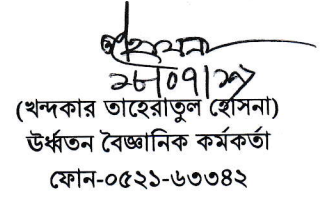 ২৮/০৭/১৯
(খন্দকার তাহেরাতুল হোসনা)
উর্ধ্বতন বৈজ্ঞানিক কর্মকর্তা
ফোন-০৫২১-৬৩৩৪২